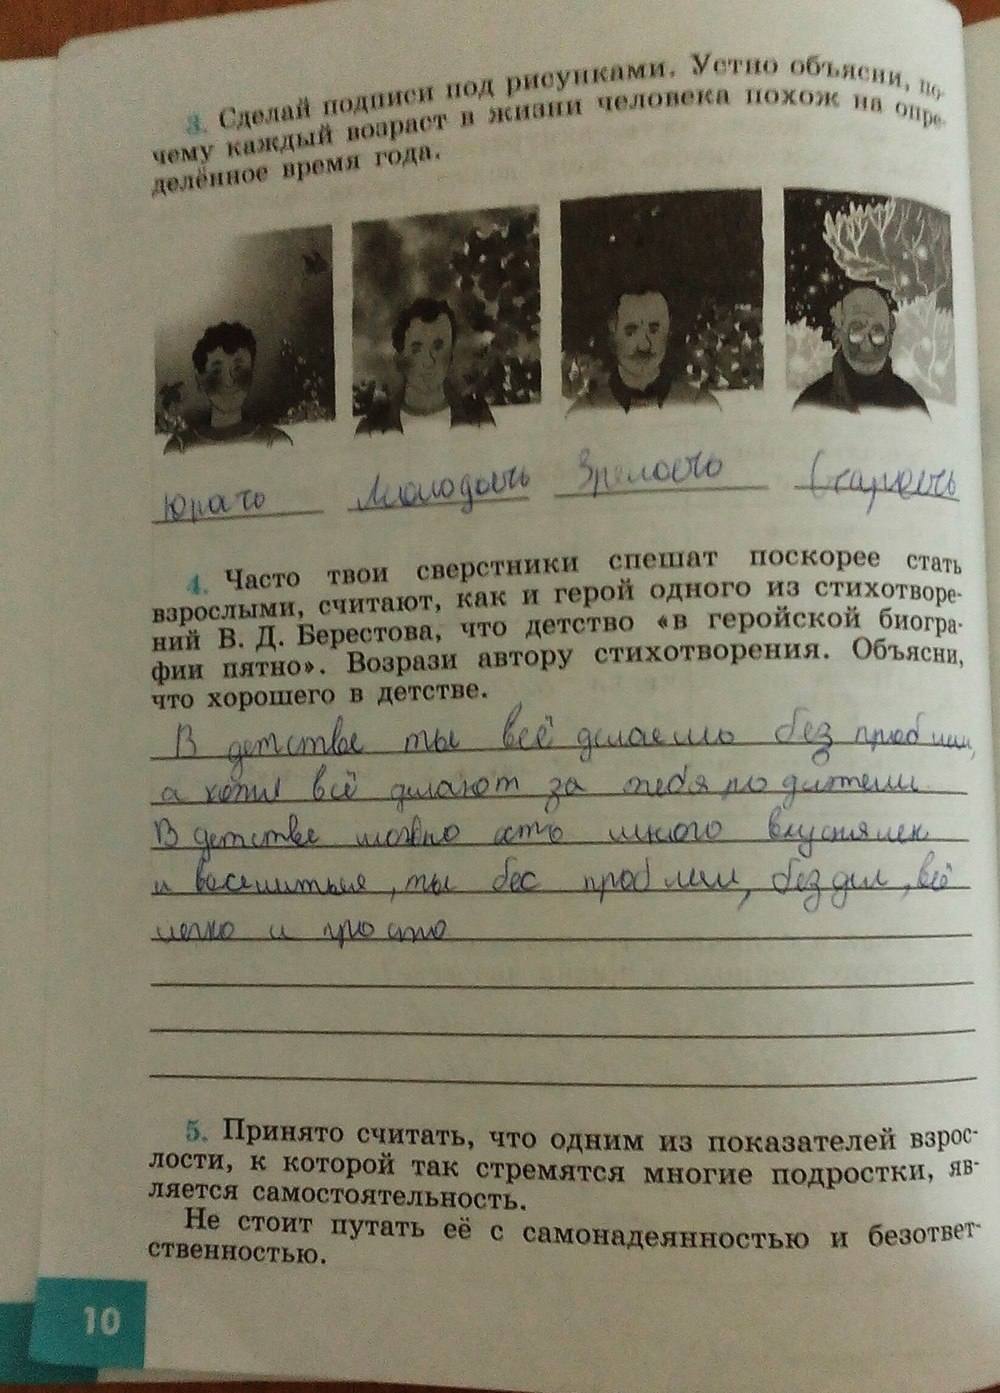 3. Сделай подписи под рисунками. Устно объясни, по-
чему каждый возраст в жизни человека похож на опре-
делённое время года.
Молодость Зрелость Старость
4. Часто твои сверстники спешат поскорее стать
взрослыми, считают, как и герой одного из стихотворе-
ний В. Д. Берестова, что детство «в геройской биогра-
фии пятно». Возрази автору стихотворения. Объясни,
что хорошего в детстве.
В детстве ты всё делаешь без проблем,
а всё делают за тебя родители
В детстве можно есть много вкусняшек
и веселиться, ты бес проблем, без дел, всё
легко и просто
5. Принято считать, что одним из показателей взрос-
лости, к которой так стремятся многие подростки, яв-
ляется самостоятельность.
Не стоит путать её с самонадеянностью и безответ-
ственностью.
10